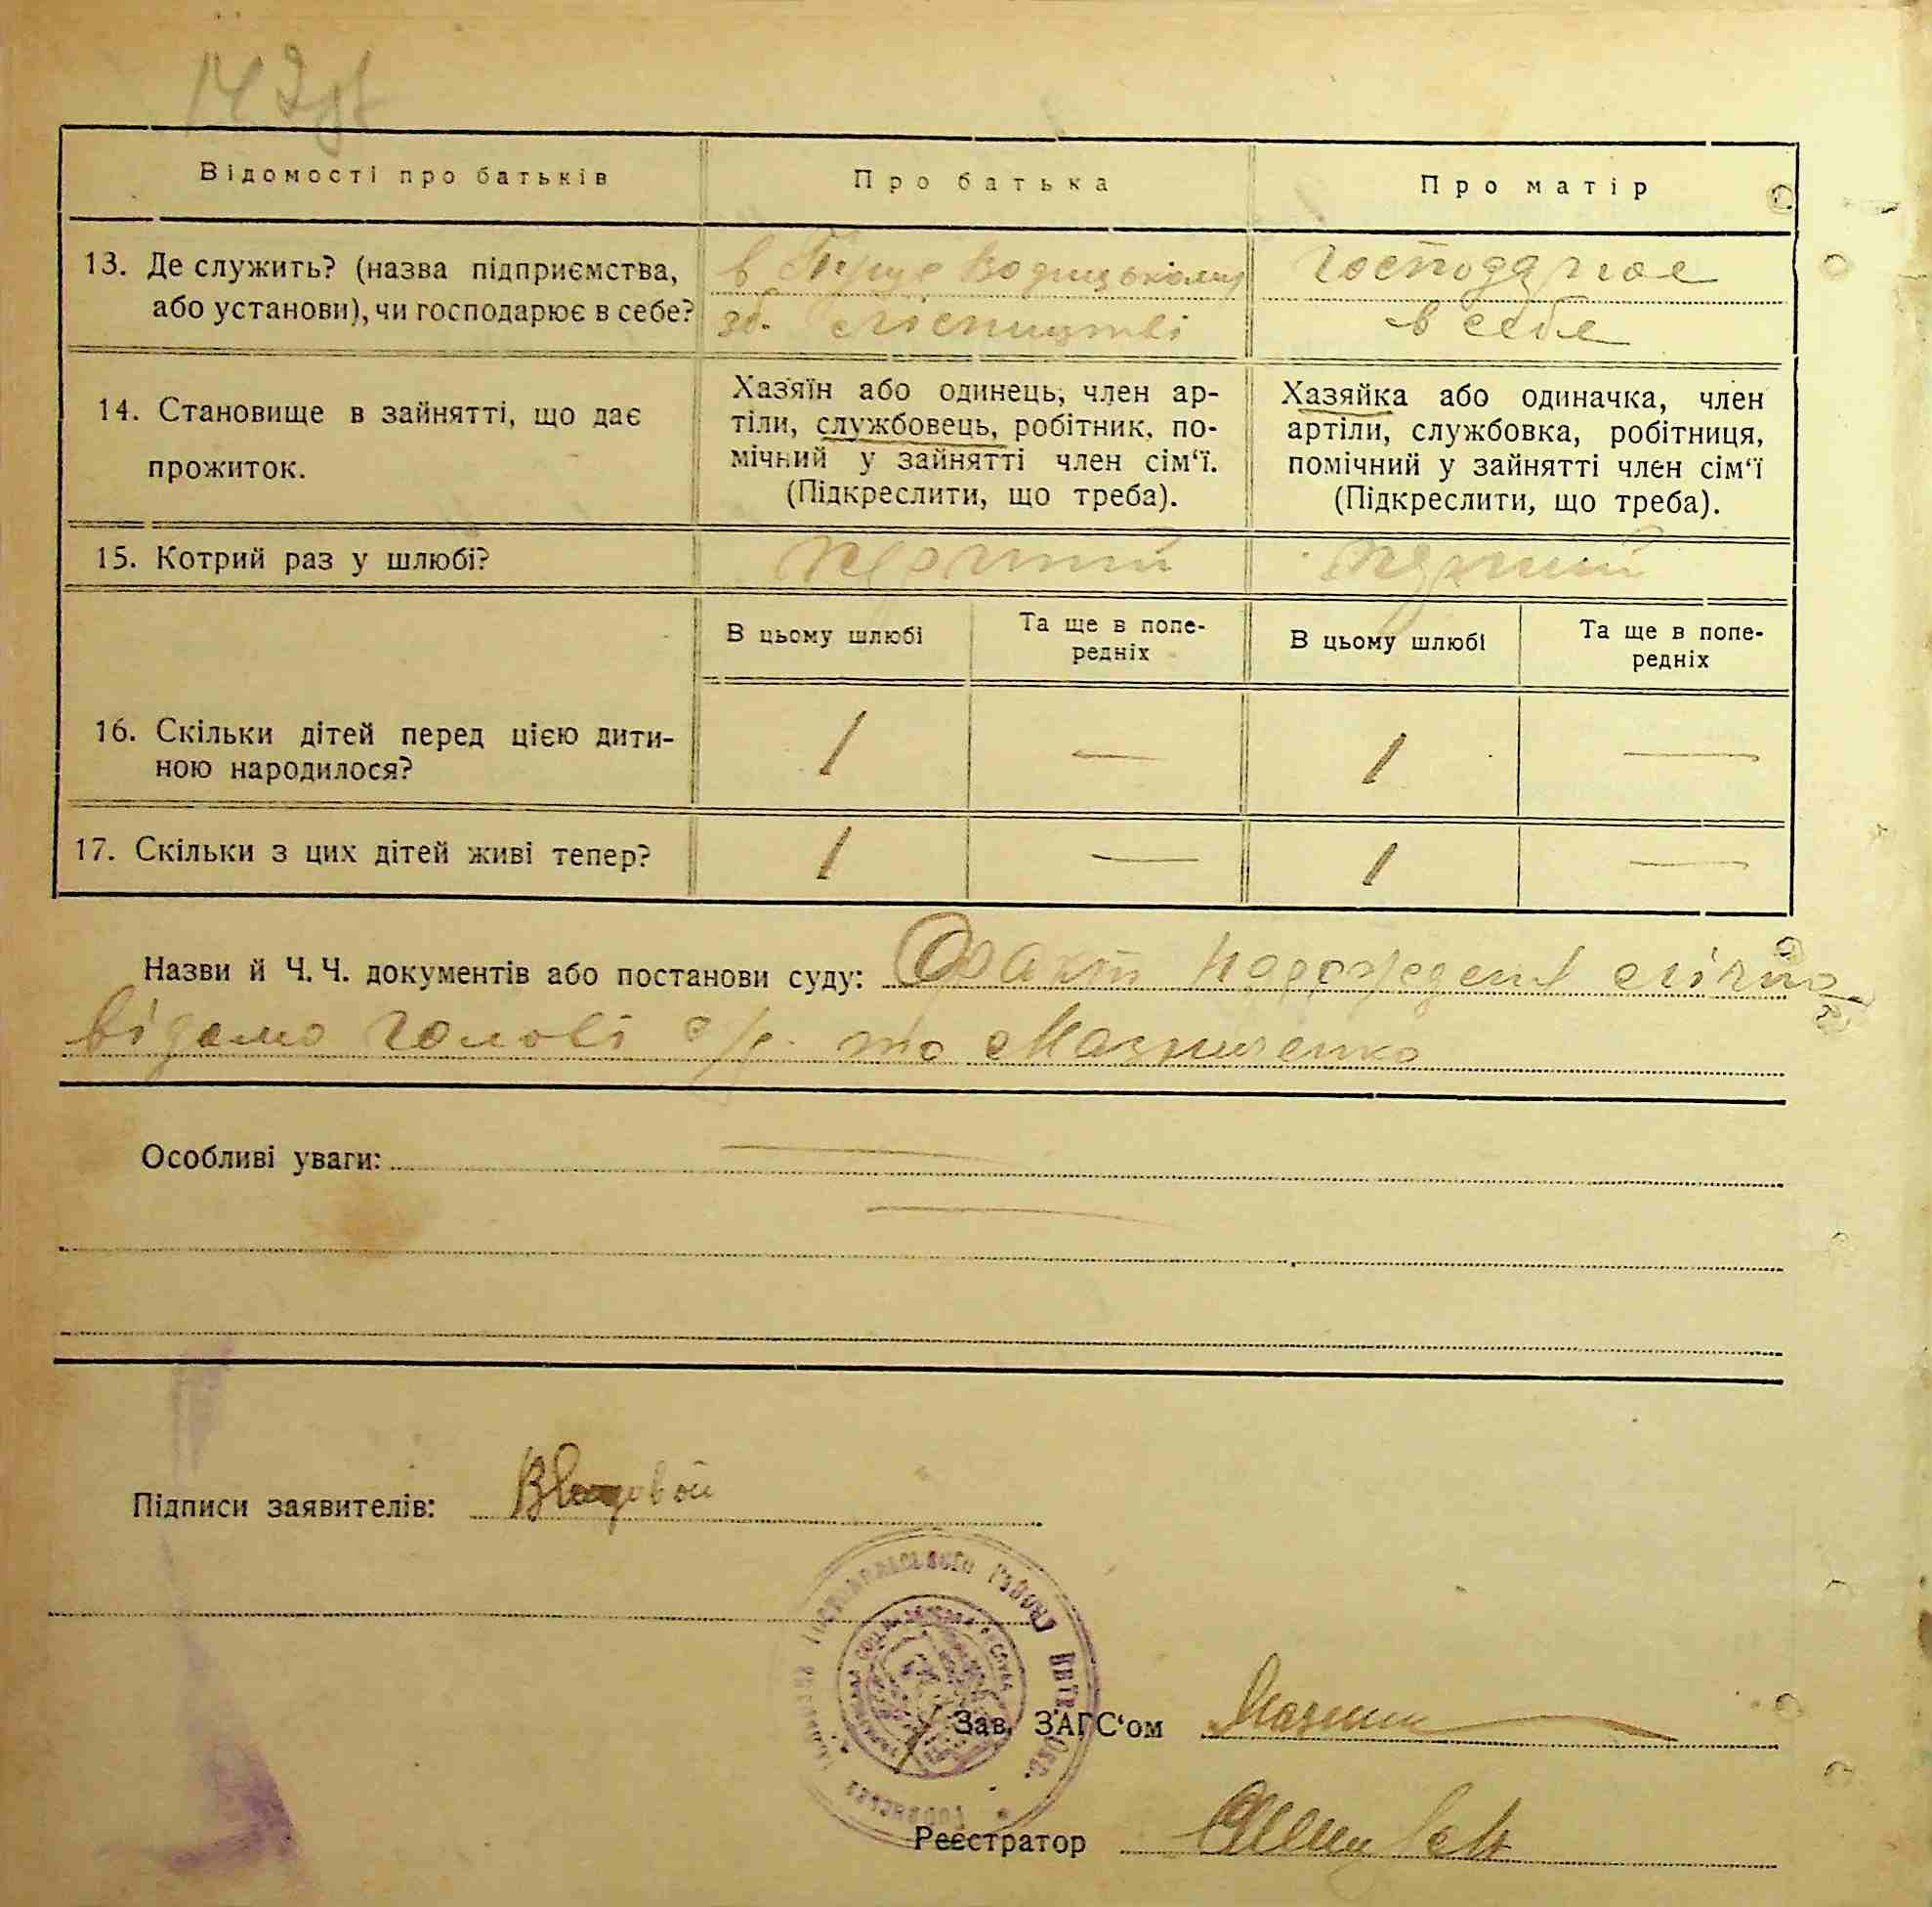 142
Відомості про батьків
Про батька
Про матір
13. Де служить? (назва підприємства,
або установи), чи господарює в себе?
в Пуще Водицькому
лісництві
господарює
в себе
14. Становище в зайнятті, що дає
прожиток.
Хазяїн або одинець, член ар-
тіли, службовець, робітник, по-
мічний у зайнятті член сім‘ї.
(Підкреслити, що треба).
Хазяйка або одиначка, член
артіли, службовка, робітниця,
помічний у зайнятті член сім‘ї
(Підкреслити, що треба).
15. Котрий раз у шлюбі?
перший
перший
В цьому шлюбі
Та ще в попе-
редніх
В цьому шлюбі
Та ще в попе-
редніх
16. Скільки дітей перед цією дити-
ною народилося?
1 — 1 —
17. Скільки з цих дітей живі тепер?
1 — 1 —
Назви й Ч. Ч. документів або постанови суду: Факт народження
відомо голові с/р. то
Особливі уваги:
Підписи заявителів:
Зав. ЗАГС‘ом
Реєстратор